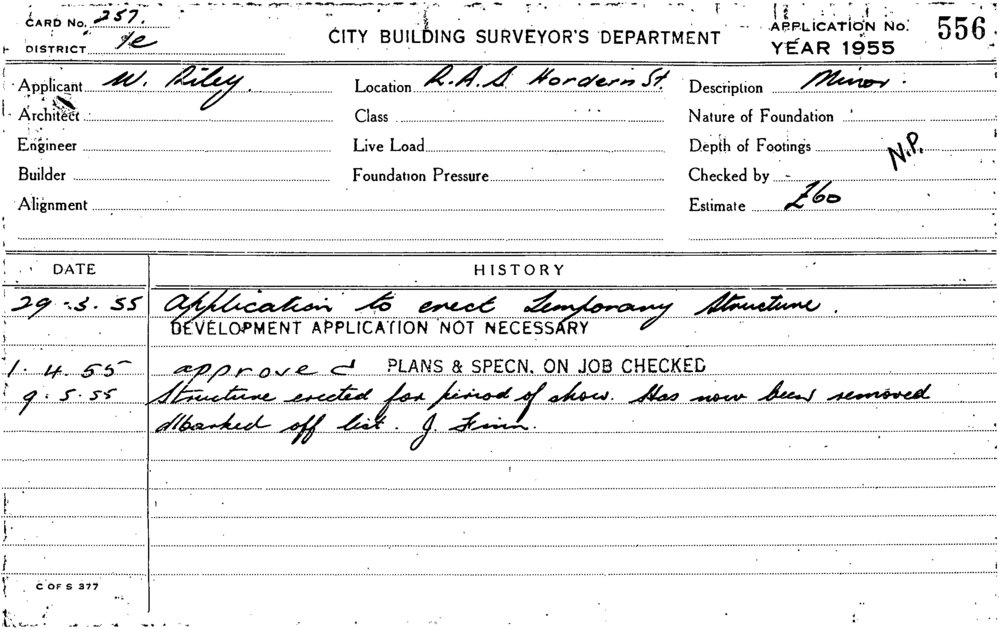 CARD NO. 257.
DISTRICT 1e
CITY BUILDING SURVEYOR'S DEPARTMENT
APPLICATION NO. 556
YEAR 1955
Applicant W. Riley.
Location R.A.S. Hordern St.
Description Minor.
Architect
Class
Nature of Foundation
Engineer
Live Load
Depth of Footings
N.P.
Builder
Foundation Pressure
Checked by
Alignment
Estimate £60
DATE HISTORY
29.3.55 Application to erect temporary structure.
DEVELOPMENT APPLICATION NOT NECESSARY
1.4.55 approved PLANS & SPECN. ON JOB CHECKED
9.5.55 Structure erected for period of show. Has now been removed
Marked off list. J. Finn.
C OF S 377